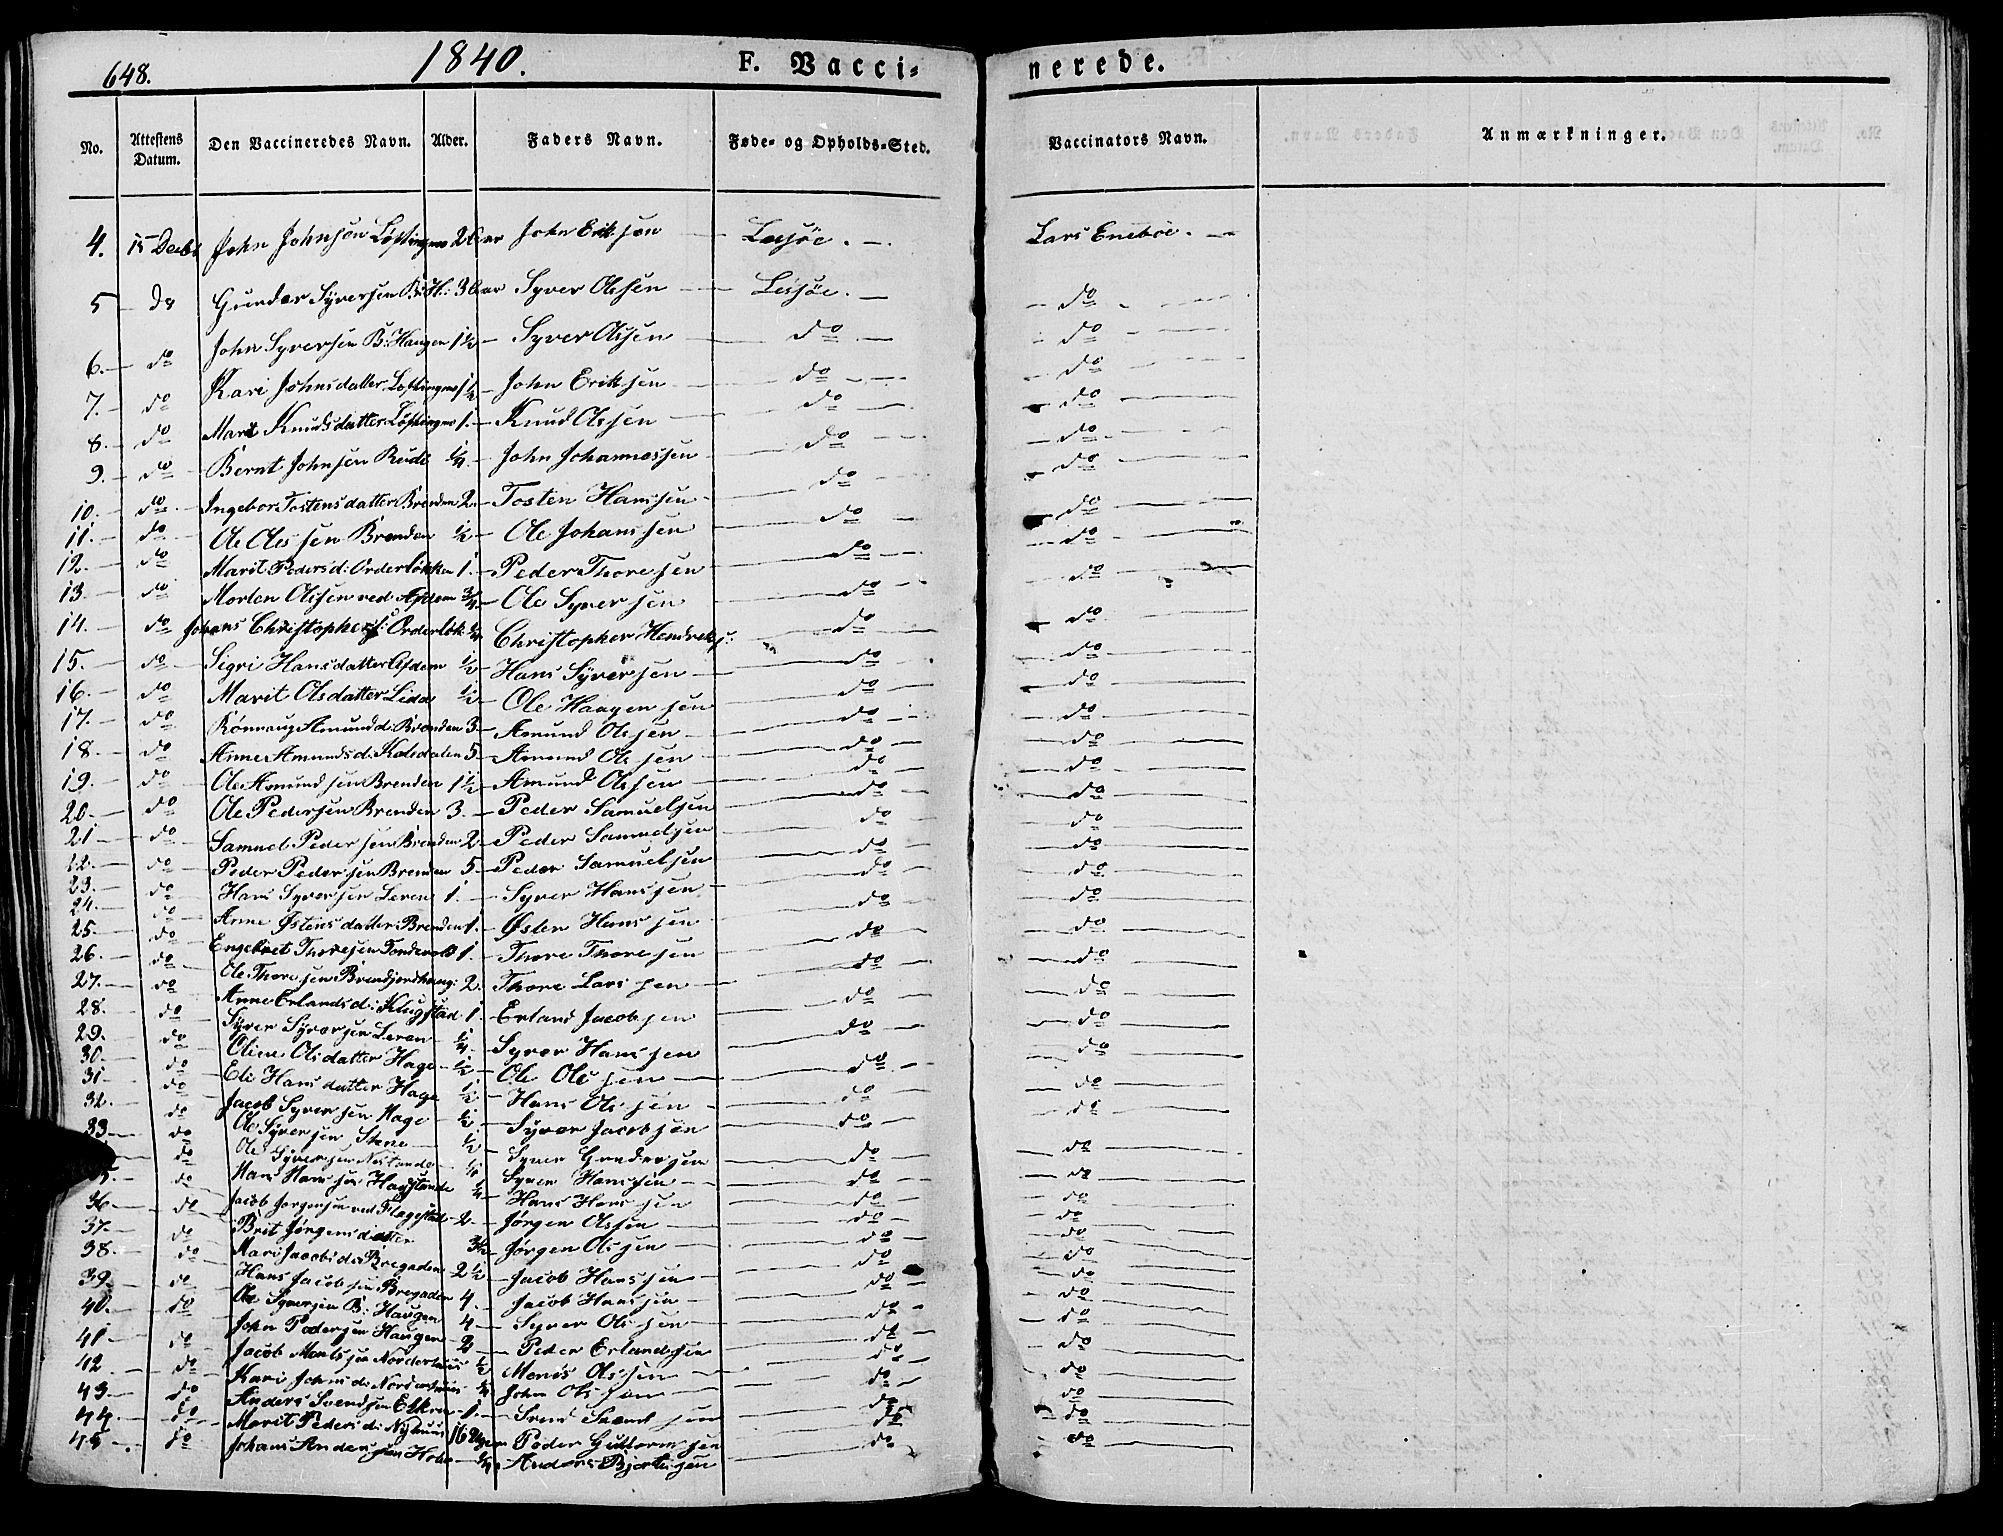 648.
1840.
F. Vacci-
nerede.
No. Attestens Datum. Den Vaccineredes Navn. Alder. Faders Navn. Føde- og Opholds-Sted. Vaccinators Navn. Anmærkninger.
4. 15 Decbr John Johnsen 2 John Eriksen Lessøe. Lars Enebøe.
5 Do Gunder Syversen B: H: 3 Syver Olssen Lessøe. — do —
6. — do John Syversen B: Haugen 1½ — Syver Olssen do — do —
7. — do Kari Johnsdatter 1½ — John Eriksen do — do
8. — do Marit Knudsdatter 1. — Knud Olssen do — do —
9. — do Bernt Johnsen Rudi ¼ — John Johannessen do — do —
10. — do Ingebor Tostensdatter Brenden 2 — Tosten Hanssen do — do
11. — do Ole Olssen Brenden ½ — Ole Johanssen do — do —
12. — do Marit Pedersd: Orderløkken 1. — Peder Thoresen do — do
13. — do Morten Olssen ved Asdem ¾ — Ole Syversen do — do
14. do Johans Christophers: Orderløk: ¼ Christopher Hendreks: do — do
15. — do Sigri Hansdatter Asdem ½ — Hans Syversen do — do
16. — do Marit Olsdatter Lida ½ — Ole Haagensen do — do
17. — do Rønnaug Amundd: Brenden 3 — Amund Olssen do — do
18 — do Anne Amundsd: Koledalen 5 — Amund Olssen do — do
19. — do Ole Amundsen Brenden 1½ — Amund Olssen do — do
20. — do Ole Pedersen Brenden 3. — Peder Samuelsen do — do
21 — do Samuel Pedersen Brenden 2 — Peder Samuelsen do — do
22. — do Peder Pedersen Brenden 5. — Peder Samuelsen do — do
23. — do Hans Syversen Leren 1. — Syver Hanssen do — do
24. — do Anne Østensdatter Brenden 1. Østen Hanssen do — do
25. — do Engebret Thoresen Tondevold 1. Thore Thoresen do — do
26. — do Ole Thoresen 2. Thore Larssen do — do
27. — do Anne Erlandsd: Klugstad 1. Erland Jacobsen do — do
28. — do Syver Syversen Leren ¼ Syver Hanssen do — do
29. — do Oline Olsdatter Hage ½ — Ole Olssen do — do
30. — do Eli Hansdatter Hage ½ — Hans Olssen do — do
31 — do Jacob Syversen Hage ½ — Syver Jacobsen do — do
32. — do Ole Syversen Stene ½ Syver Gundersen do — do
33 — do Ole Syversen Syver Hanssen do — do
do Hans Hanssen ¼ Hans Hanssen do — do
5. — do Jacob Jørgensen ved Flagestad 2. — Jørgen Olssen do — do
36 — do Brit Jørgensdatter 3½ — Jørgen Olssen do — do
37. — do Mari Jacobsd: Bregaden 2½ — Jacob Hanssen do — do
38. — do Hans Jacobsen Bregaden 4. Jacob Hanssen do — do
39. — do Ole Syversen B: Haugen 4 — Syver Olssen do — do
40. — do John Pedersen Haugen 2 — Peder Erlandsen do — do
41 — do Jacob Montssen Norderhuus ½ Monts Olssen do — do
42 — do Kari Johnsd: Norderhuus ¼ John Olssen do — do
43. — do Anders Svendsen 1. — Svend do — do
44. — do Marit Pedersd: Nyhuus 16 Uger Peder Guttormsen do — do
45 — do Johans Anderssen ¼ Anders do — do